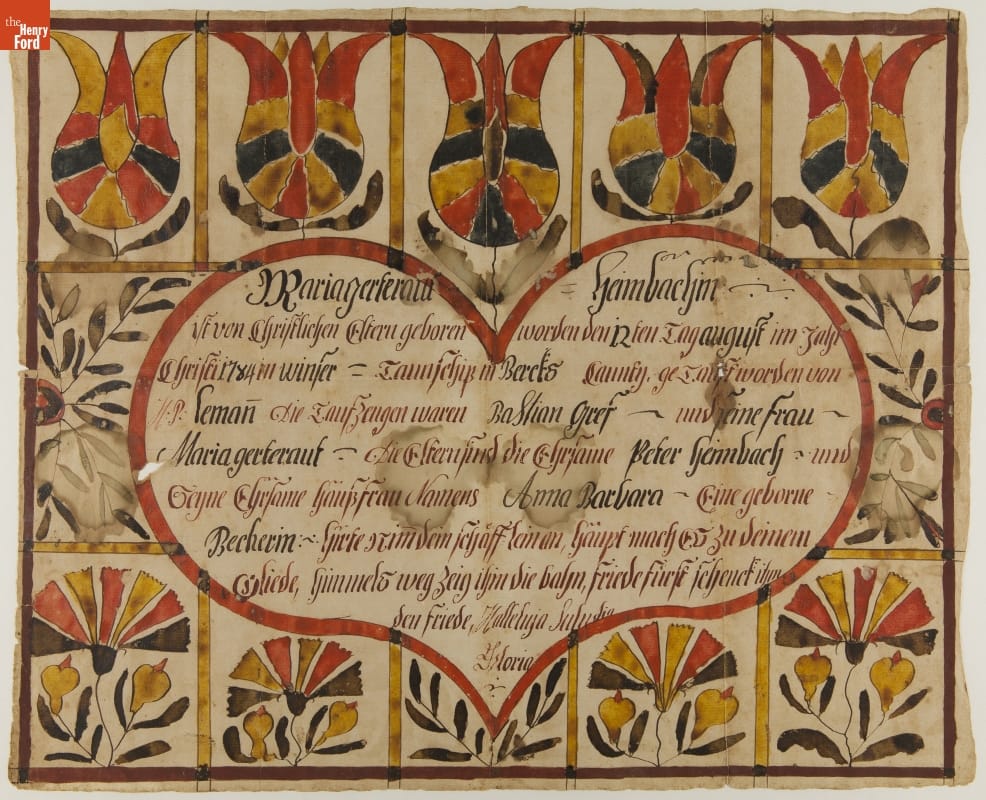 the
Henry
Ford
Mariagerteraut = Heimbachin
ist von Christlichen Eltern geboren worden den 12ten Tag august im Jahr
Christi 1784 in winser = Taunschip in Bercks Caunty, getauft worden von
H. P. lemañ Die Taufzeugen waren Bastian Gref ~ und seine frau ~
Maria gerteraut ~ Die Eltern sind die Ehrsame Peter Heimbach ~ und
Seyne Ehrsame haußfrau Namens Anna Barbara ~ Eine geborne
Becherin ~ Hirte nim dein schäfflein an, haupt mach ES zu deinem
Gliede, himmels weg zeig ihm die bahn, friede fürst schenck ihm
den friede, Halleluja
Gloria